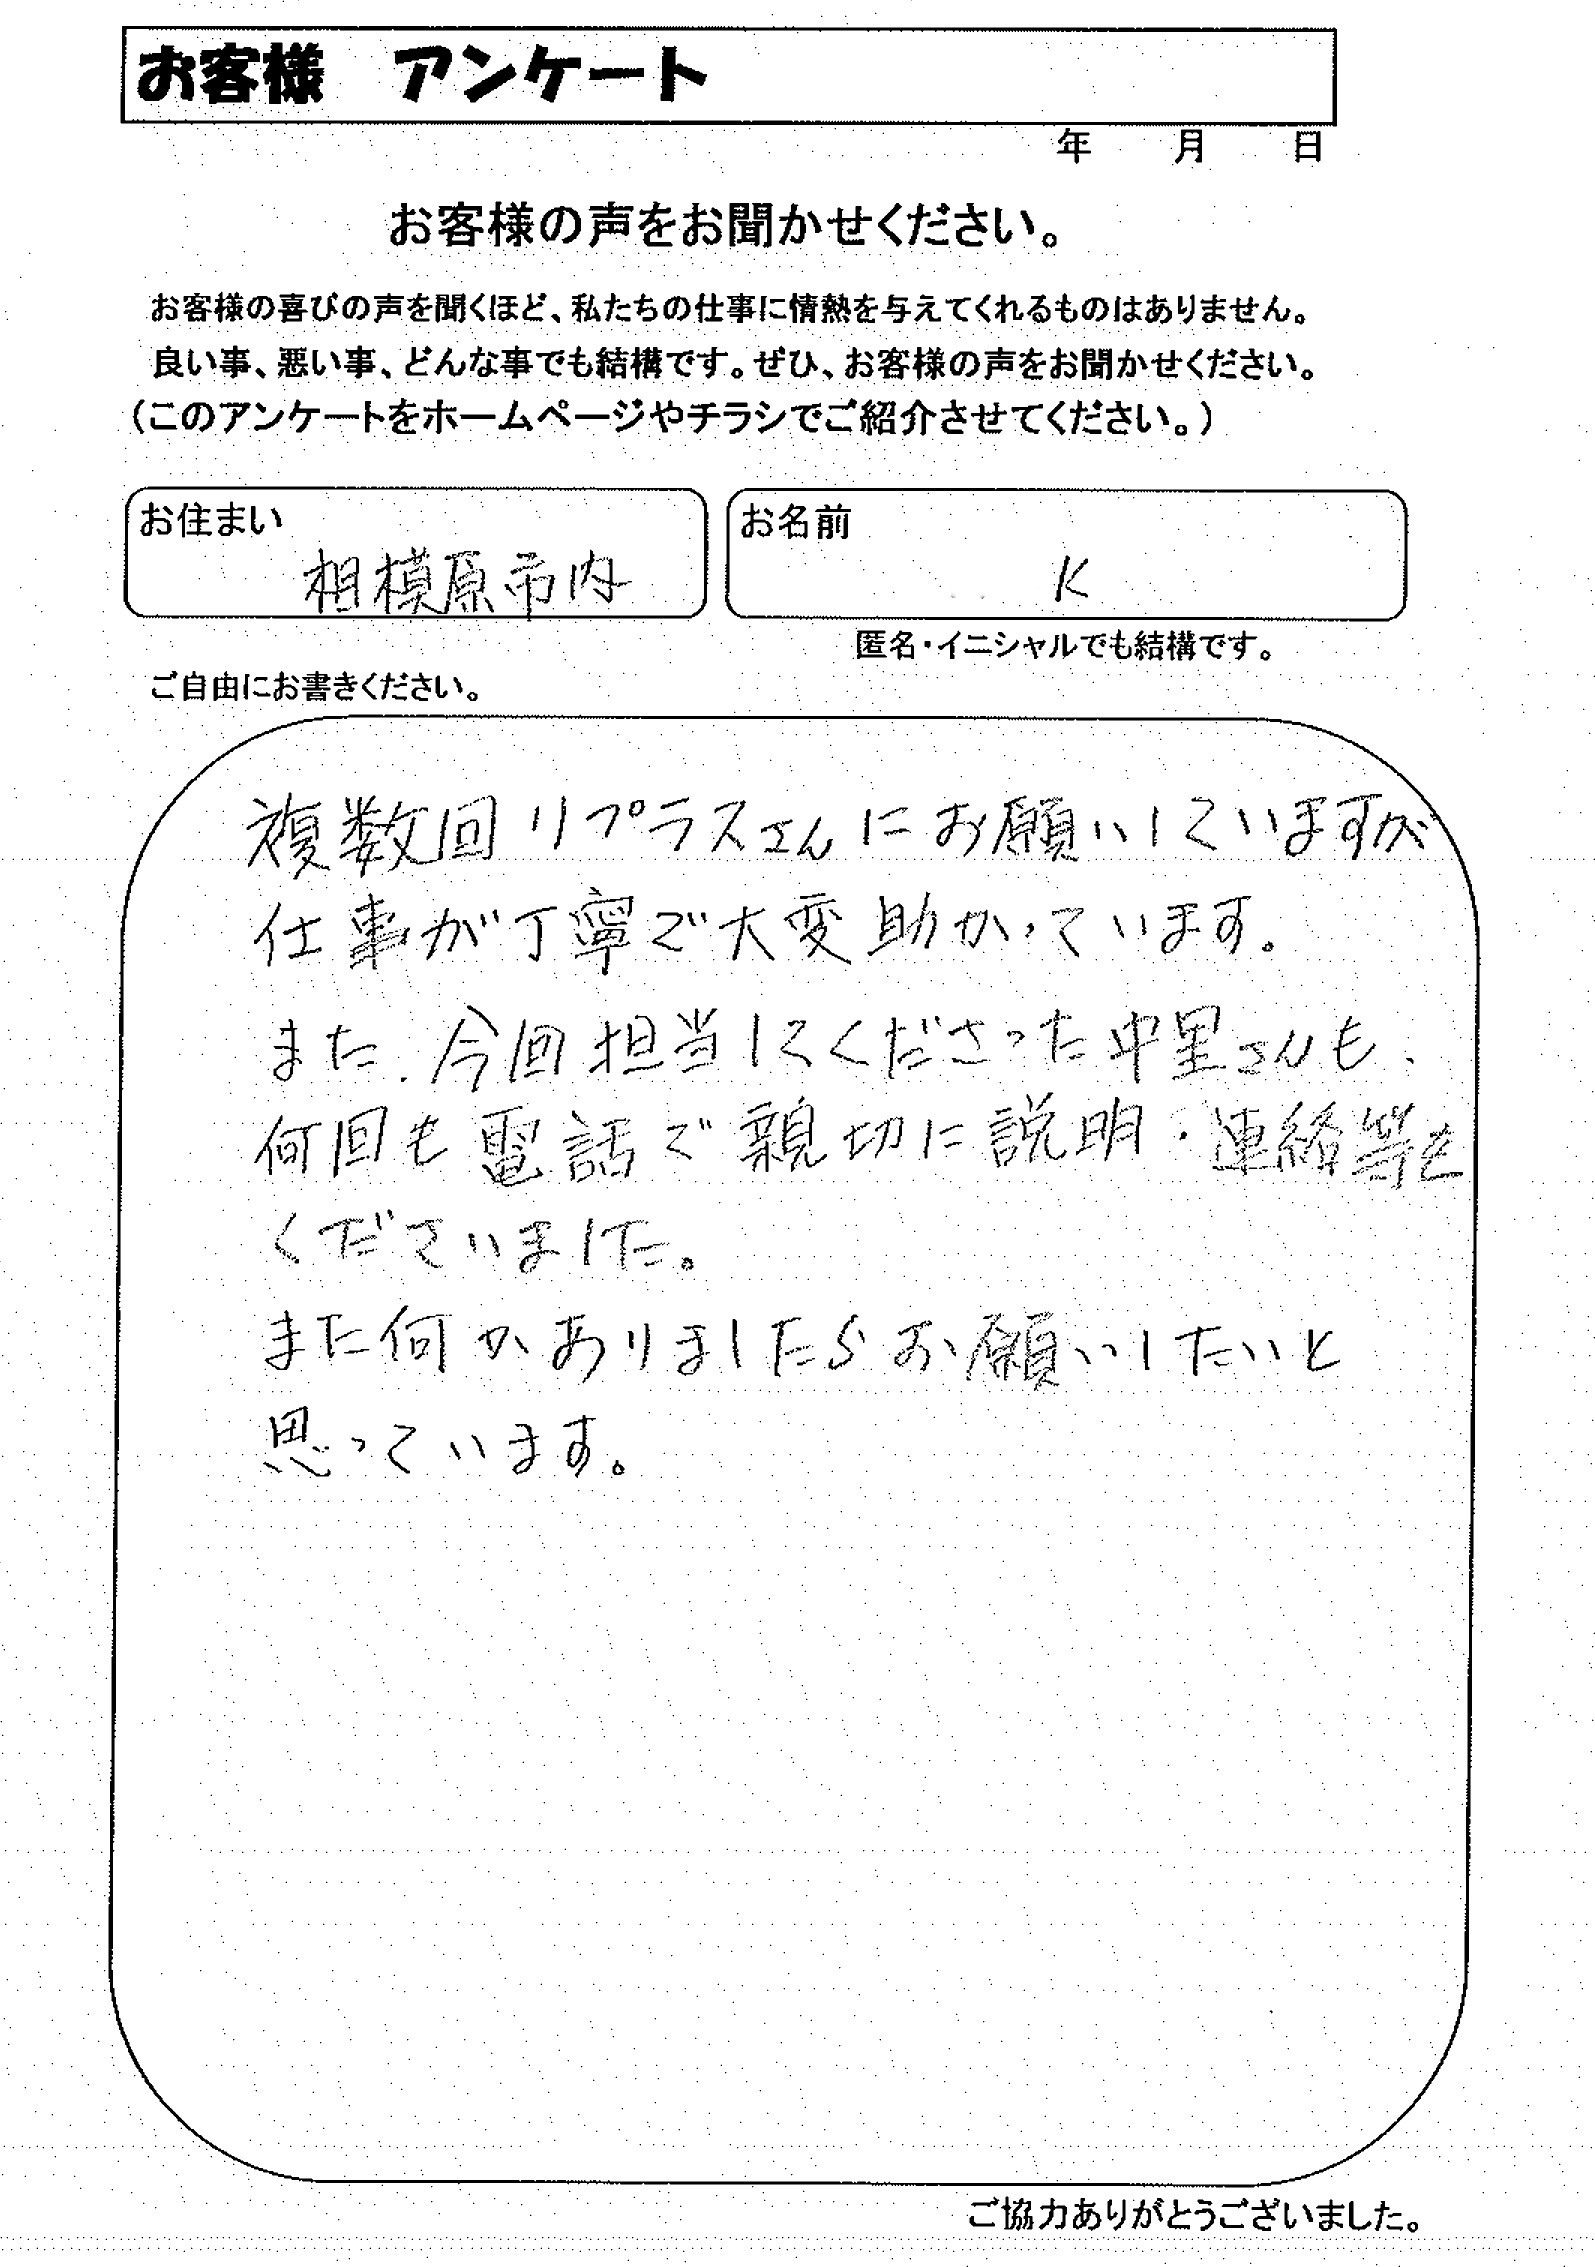 お客様　アンケート
年　月　日
お客様の声をお聞かせください。
お客様の喜びの声を聞くほど、私たちの仕事に情熱を与えてくれるものはありません。
良い事、悪い事、どんな事でも結構です。ぜひ、お客様の声をお聞かせください。
（このアンケートをホームページやチラシでご紹介させてください。）
お住まい
相模原市内
お名前
K
匿名・イニシャルでも結構です。
ご自由にお書きください。
複数回リプラスさんにお願いしていますが
仕事が丁寧で大変助かっています。
また、今回担当してくださった中里さんも、
何回も電話で親切に説明・連絡等を
くださいました。
また何かありましたらお願いしたいと
思っています。
ご協力ありがとうございました。